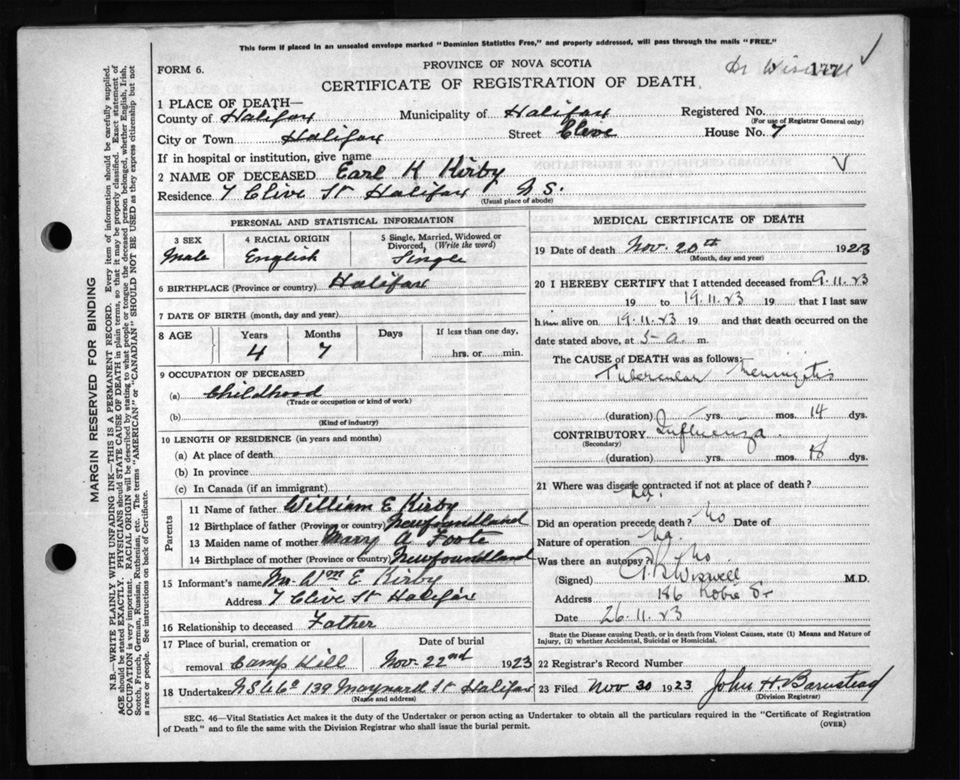 This form if placed in an unsealed envelope marked "Dominion Statistics Free," and properly addressed, will pass through the mails "FREE."
FORM 6.
PROVINCE OF NOVA SCOTIA
Dr Wiswell 177
CERTIFICATE OF REGISTRATION OF DEATH
1 PLACE OF DEATH—
County of Halifax Municipality of Halifax Registered No.
(For use of Registrar General only)
City or Town Halifax Street Clive House No. 7
If in hospital or institution, give name
2 NAME OF DECEASED Earl K Kirby
Residence 7 Clive St Halifax N S.
(Usual place of abode)
PERSONAL AND STATISTICAL INFORMATION
3 SEX Male
4 RACIAL ORIGIN English
5 Single, Married, Widowed or Divorced, (Write the word) Single
6 BIRTHPLACE (Province or country) Halifax
7 DATE OF BIRTH (month, day and year)
8 AGE Years 4 Months 7 Days If less than one day, hrs. or min.
9 OCCUPATION OF DECEASED
(a) Childhood
(Trade or occupation or kind of work)
(b)
(Kind of industry)
10 LENGTH OF RESIDENCE (in years and months)
(a) At place of death
(b) In province
(c) In Canada (if an immigrant)
Parents
11 Name of father William E Kirby
12 Birthplace of father (Province or country) Newfoundland
13 Maiden name of mother Mary A Foote
14 Birthplace of mother (Province or country) Newfoundland
15 Informant's name Mr. Wm E Kirby
Address 7 Clive St Halifax
16 Relationship to deceased Father
17 Place of burial, cremation or removal Camp Hill Date of burial Nov. 22nd 1923
18 Undertaker N S U Co 139 Maynard St Halifax
(Name and address)
MEDICAL CERTIFICATE OF DEATH
19 Date of death Nov. 20th 1923
(Month, day and year)
20 I HEREBY CERTIFY that I attended deceased from 9.11.23
19 to 19.11.23 19 that I last saw
him alive on 19.11.23 19 and that death occurred on
date stated above, at 5- a. m.
The CAUSE OF DEATH was as follows:
Tubercular Meningitis
(duration) yrs. mos. 14 dys.
CONTRIBUTORY Influenza.
(Secondary)
(duration) yrs. mos. 18 dys.
21 Where was disease contracted if not at place of death?
Did an operation precede death? No Date of
Nature of operation
Was there an autopsy? No
(Signed) Wiswell M.D.
Address 186 Robie St
Date 26.11.23
State the Disease causing Death, or in death from Violent Causes, state (1) Means and Nature of Injury, (2) whether Accidental, Suicidal or Homicidal.
22 Registrar's Record Number
23 Filed Nov 30 1923 John H Barnstead
(Division Registrar)
SEC. 46—Vital Statistics Act makes it the duty of the Undertaker or person acting as Undertaker to obtain all the particulars required in the "Certificate of Registration of Death" and to file the same with the Division Registrar who shall issue the burial permit.
(OVER)
MARGIN RESERVED FOR BINDING
N.B.—WRITE PLAINLY WITH UNFADING INK—THIS IS A PERMANENT RECORD. Every item of information should be carefully supplied.
AGE should be stated EXACTLY. PHYSICIANS should STATE CAUSE OF DEATH in plain terms, so that it may be properly classified. Exact statement of
OCCUPATION is very important. RACIAL ORIGIN will be described by stating to what people or tongue the deceased person belonged, whether English, Irish,
Scotch, French, German, Russian, Ruthenian, etc. The terms "AMERICAN" or "CANADIAN" SHOULD NOT BE USED as they express citizenship but not
a race or people. See instructions on back of Certificate.